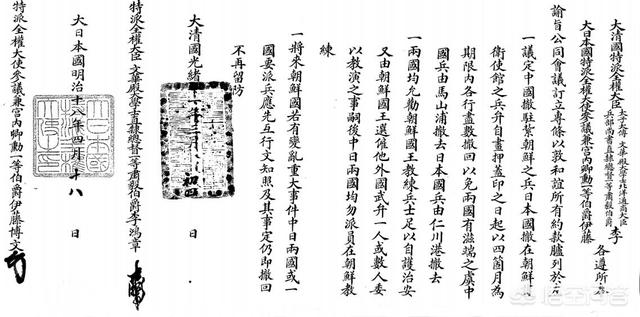 大清國特派全權大臣太子太傅文華殿大學士北洋通商大臣兵部尚書直隸總督一等肅毅伯爵李
大日本國特派全權大使參議兼宮內卿勳一等伯爵伊藤各遵所奉
諭旨公同會議訂立專條以敦和誼所有約款臚列於左
一議定中國撤駐紮朝鮮之兵日本國撤在朝鮮護
衛使館之兵弁自畫押蓋印之日起以四箇月為
期限內各行盡數撤回以免兩國有滋端之虞中
國兵由馬山浦撤去日本國兵由仁川港撤去
一兩國均允勸朝鮮國王教練兵士足以自護治安
又由朝鮮國王選僱他外國武弁一人或數人委
以教演之事嗣後中日兩國均勿派員在朝鮮教
練
一將來朝鮮國若有變亂重大事件中日兩國或一
國要派兵應先互行文知照及其事定仍即撤回
不再留防
大清國光緒十一年三月初四日
特派全權大臣文華殿大學士直隸總督一等肅毅伯爵李鴻章
大日本國明治十八年四月十八日
特派全權大使參議兼宮內卿勳一等伯爵伊藤博文
悟空问答